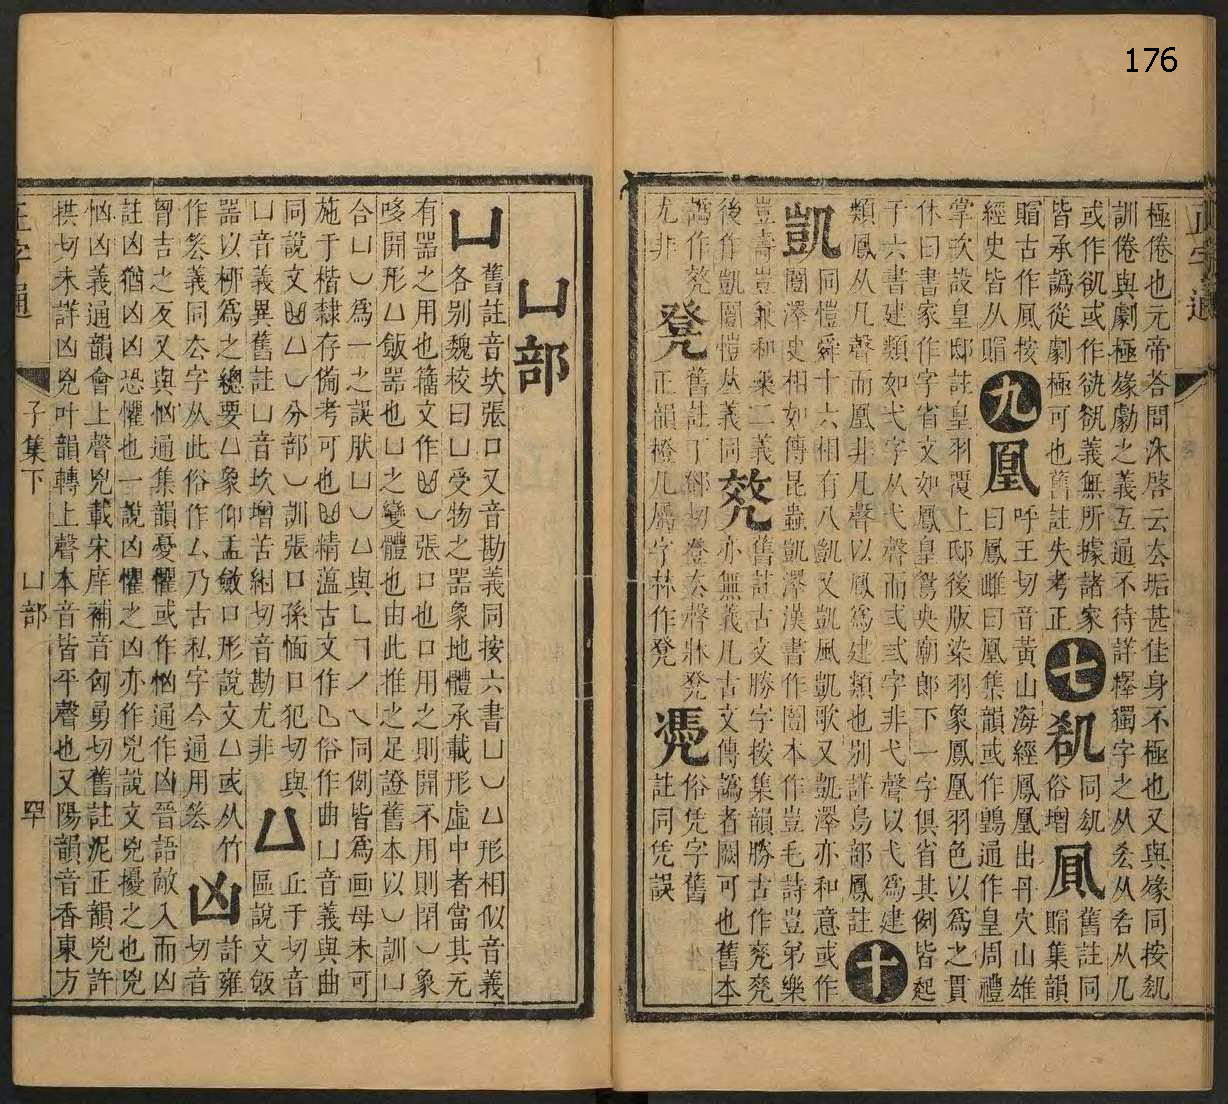 176
正字通
極倦也元帝荅問沬啓云厺垢甚佳身不極也又與㦬同按㓡
訓倦與劇極㦬勮之義互通不待詳擇獨字之从厺从𠯑从几
或作㰟或作㕁㩻義無所據諸家
皆承譌從劇極可也舊註失考正
七
㲉
同㓡
俗增
鳯
舊註同
䎽集韻
䎽古作凨按
經史皆从䎽
九
凰
呼王切音黃山海經鳳凰出丹穴山雄
曰鳳雌曰凰集韻或作鷬通作皇周禮
掌次設皇邸註皇羽覆上邸後版染羽象鳳凰羽色以爲之貫
休曰書家作字省文如鳳皇鴛央廟郎下一字俱省其例皆起
于六書建類如弋字从弋聲而弍弎字非弋聲以弋爲建
類鳳从凡聲而凰非凡聲以鳳爲建類也别詳鳥部鳳註
十
凱
同愷舜十六相有八凱又凱風凱歌又凱澤亦和意或作
闓澤史相如傳昆蟲凱澤漢書作闓本作豈毛詩豈弟樂
豈壽豈兼和樂二義
後作凱闓愷𠀤義同
凳
舊註古文勝字按集韻勝古作兗凳
亦無義几古文傳譌者闕可也舊本
譌作凳
尤非
凳
舊註丁鄧切登厺聲牀凳
正韻橙几屬字林作凳
凴
俗凭字舊
註同凭誤
凵部
凵
舊註音坎張口又音勘義同按六書凵㇃ㄩ形相似音義
各别魏校曰凵受物之器象地體承載形虛中者當其无
有器之用也籀文作𠙶㇃張口也口用之則開不用則閉㇃象
哆開形ㄩ飯器也凵之變體也由此推之足證舊本以㇃訓凵
合凵㇃爲一之誤肰凵㇃ㄩ與𠃊㇕丿乀同例皆爲画母未可
施于楷隸存備考可也𠙶精薀古文作𠃊俗作曲凵音義與曲
同說文𠙶ㄩ㇃分部㇃訓張口孫愐口犯切與
凵音義異舊註凵音坎增苦紺切音勘尤非
ㄩ
丘于切音
區說文飯
器以桺爲之總要ㄩ象仰盂斂口形說文ㄩ或从竹
作𥬔義同厺字从此俗作厶乃古私字今通用𥬔
凶
許雍
切音
胷吉之反又與恟通集韻憂懼或作恟通作凶晉語敵入而凶
註凶猶凶凶恐懼也一說凶懼之凶亦作兇說文兇擾之也兇
恟凶義通韻會上聲兇載宋庠補音匈勇切舊註泥正韻兇許
拱切未詳凶兇叶韻轉上聲本音皆平聲也又陽韻音香東方
正字通
子集下
凵部
四十